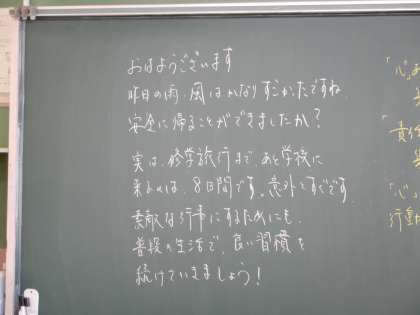 おはようございます
昨日の雨・風はかなりすごかったですね。
安全に帰ることができましたか?
実は、修学旅行まで、あと学校に
来るのは、8日間です。意外とすぐです。
素敵な行事にするためにも、
普段の生活で、良い習慣を
続けていきましょう!
「心」
「責任
「心」
行動